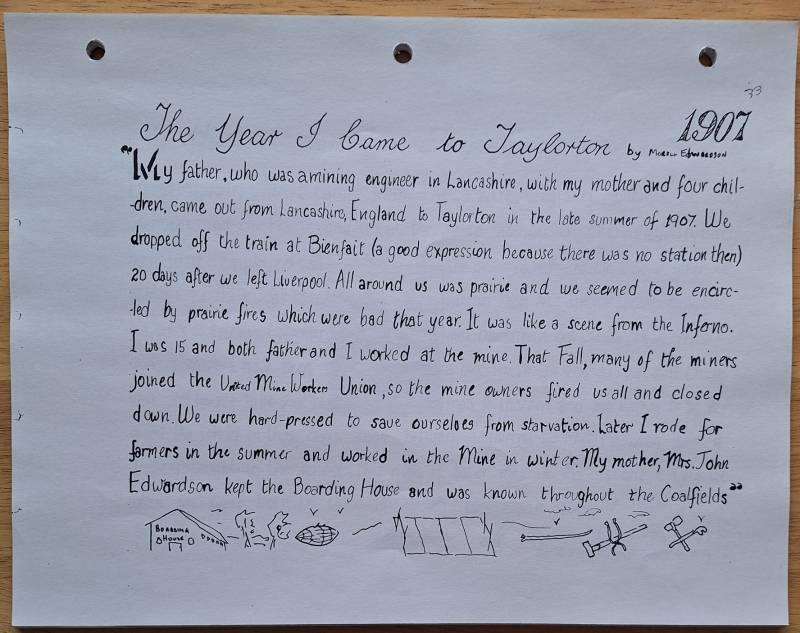 33
1907
The Year I Came to Taylorton by Edwardson
"My father, who was a mining engineer in Lancashire, with my mother and four chil-
-dren, came out from Lancashire, England to Taylorton in the late summer of 1907. We
dropped off the train at Bienfait (a good expression because there was no station then)
20 days after we left Liverpool. All around us was prairie and we seemed to be encirc-
-led by prairie fires which were bad that year. It was like a scene from the Inferno.
I was 15 and both father and I worked at the mine. That Fall, many of the miners
joined the United Mine Workers Union, so the mine owners fired us all and closed
down. We were hard-pressed to save ourselves from starvation. Later I rode for
farmers in the summer and worked in the Mine in winter. My mother, Mrs. John
Edwardson kept the Boarding House and was known throughout the Coalfields"
Boarding
House